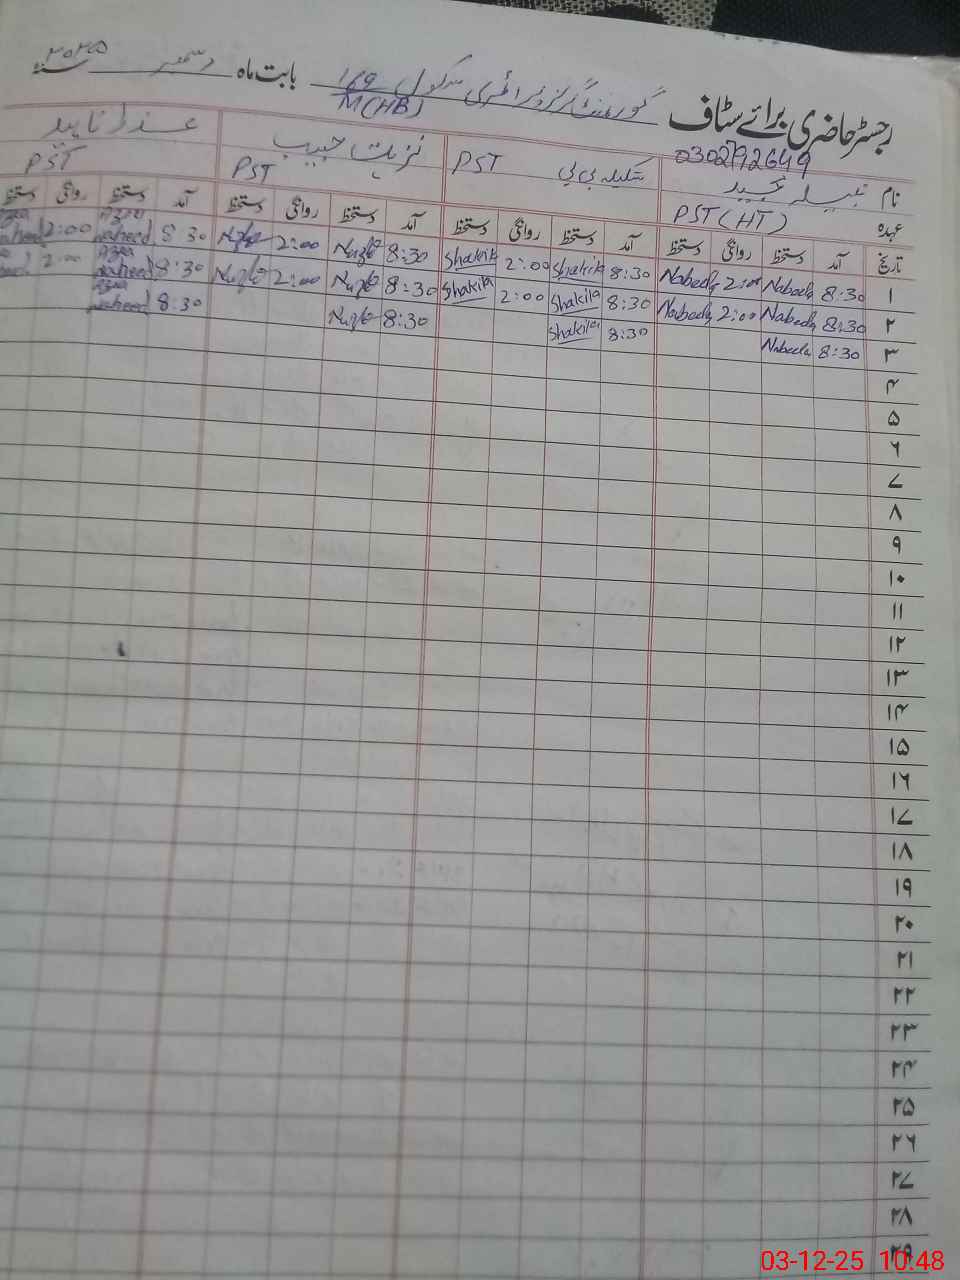 رجسٹر حاضری برائے سٹاف گورنمنٹ گرلز پرائمری سکول 169 M(HB) بابت ماہ دسمبر سنہ ۲۰۲۵
نام شکیلہ بی بی PST نزہت حبیب عذرا ناہید
عہدہ PST (HT) PST PST
تاریخ آمد دستخط روانگی دستخط آمد دستخط روانگی دستخط آمد دستخط روانگی دستخط آمد دستخط روانگی دستخط
۱ 8:30 Nabeela 2:00 Nabeela 8:30 Shakila 2:00 Shakila 8:30 Nuzht 2:00 Nuzht 8:30 Azra naheed 2:00 Azra naheed
۲ 8:30 Nabeela 2:00 Nabeela 8:30 Shakila 2:00 Shakila 8:30 Nuzht 2:00 Nuzht 8:30 Azra naheed 2:00
۳ 8:30 Nabeela 8:30 Shakila 8:30 Nuzht 8:30 Azra naheed
۴
۵
۶
۷
۸
۹
۱۰
۱۱
۱۲
۱۳
۱۴
۱۵
۱۶
۱۷
۱۸
۱۹
۲۰
۲۱
۲۲
۲۳
۲۴
۲۵
۲۶
۲۷
۲۸
۲۹
03-12-25 10:48